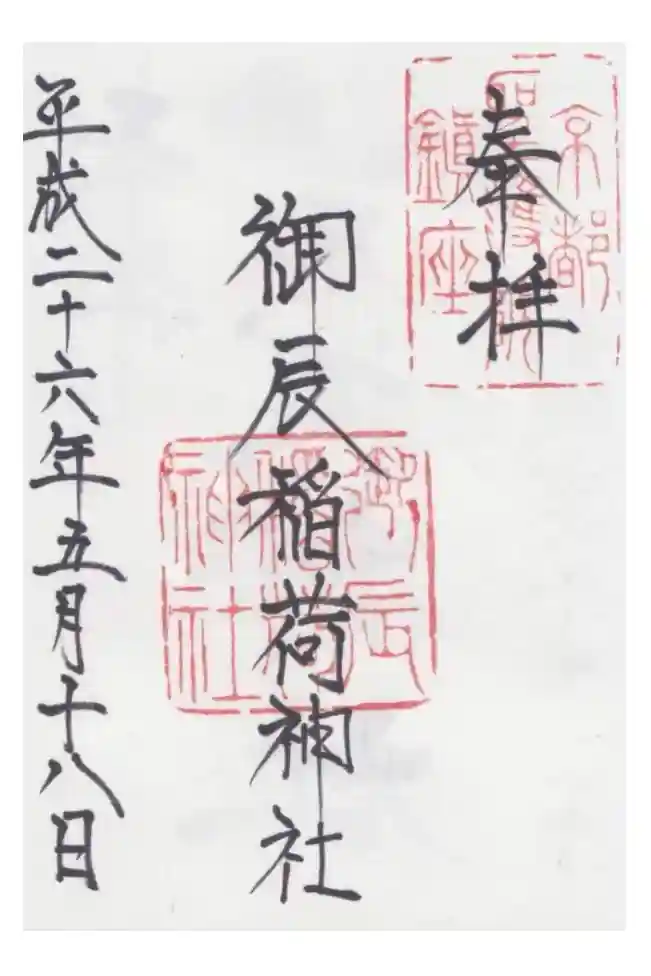 奉拝
京都
聖護院
鎮座
御辰稲荷神社
御辰
稲荷
神社
平成二十六年五月十八日